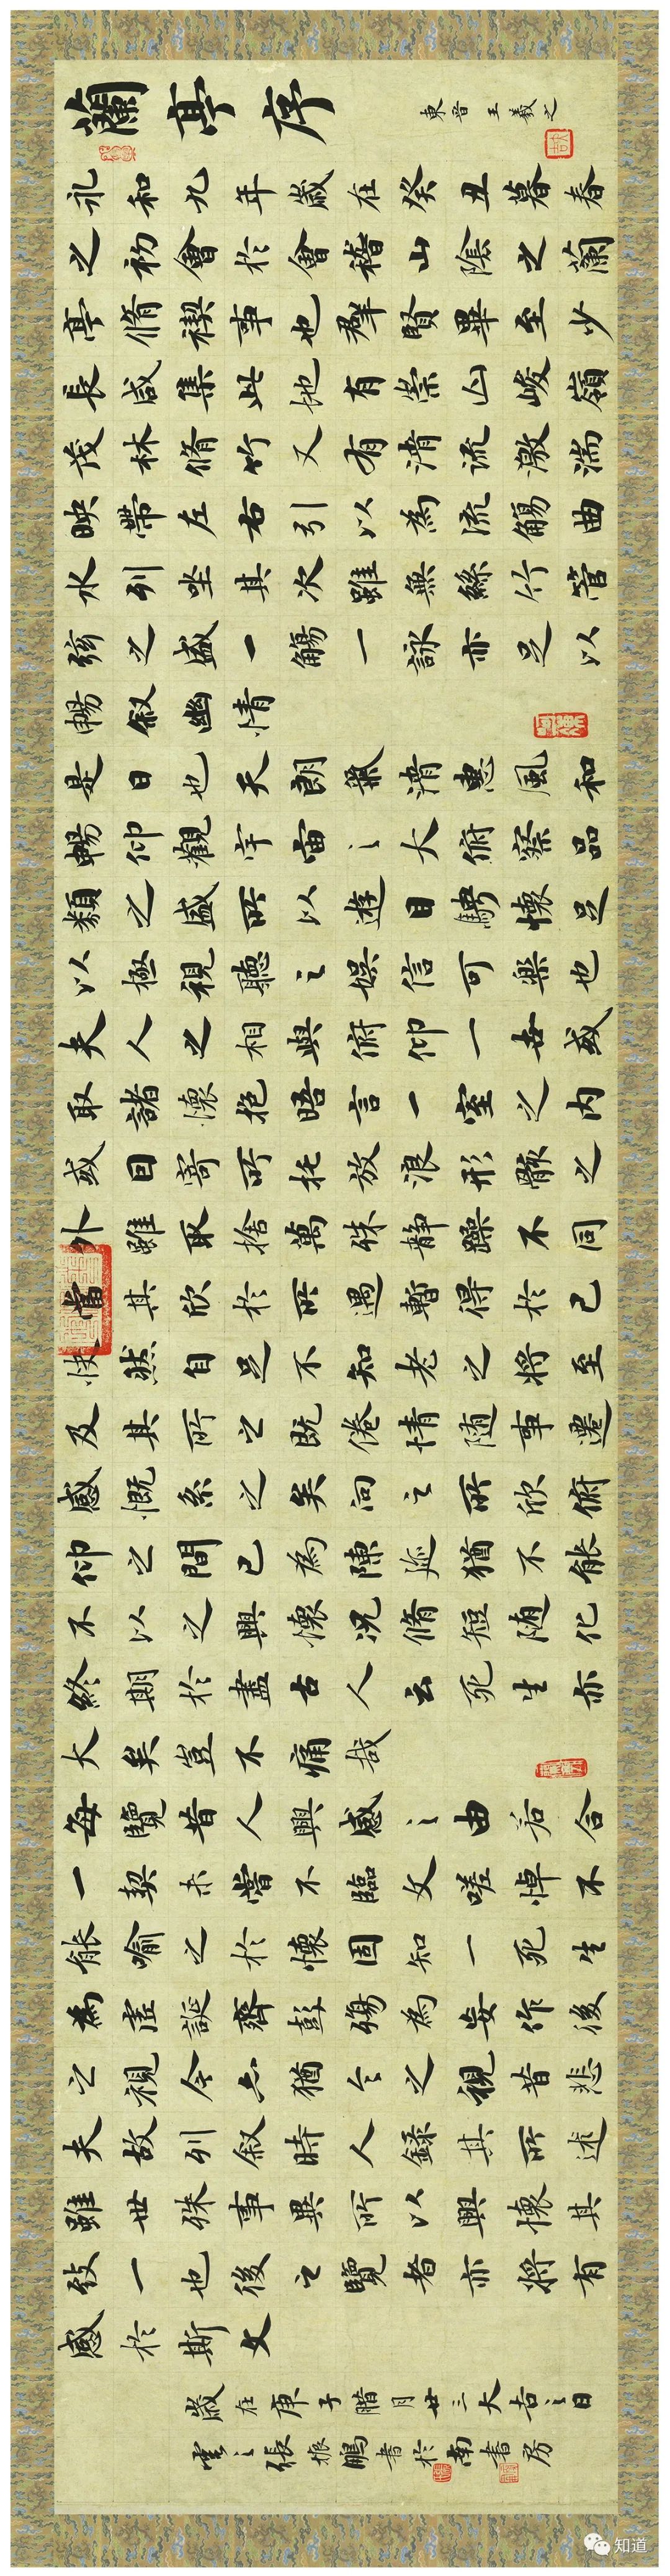 蘭亭序
東晉王羲之
永和九年歲在癸丑暮春
之初會於會稽山陰之蘭
亭脩禊事也羣賢畢至少
長咸集此地有崇山峻嶺
茂林脩竹又有清流激湍
映帶左右引以為流觴曲
水列坐其次雖無絲竹管
弦之盛一觴一詠亦足以
暢叙幽情
是日也天朗氣清惠風和
暢仰觀宇宙之大俯察品
類之盛所以遊目騁懷足
以極視聽之娛信可樂也
夫人之相與俯仰一世或
取諸懷抱晤言一室之內
或因寄所托放浪形骸之
外雖取捨萬殊静躁不同
當其欣於所遇暫得於己
快然自足不知老之將至
及其所之既倦情随事遷
感慨系之矣向之所欣俯
仰之間已為陳迹猶不能
不以之興懷况脩短随化
終期於盡古人云死生亦
大矣豈不痛哉
每覽昔人興感之由若合
一契未嘗不臨文嗟悼不
能喻之於懷固知一死生
為虛誕齊彭殤為妄作後
之視今亦猶今之視昔悲
夫故列叙時人錄其所述
雖世殊事異所以興懷其
致一也後之覽者亦將有
感於斯文
歲在庚子腊月廿三大吉之日
雲之張振鵬書於南書房
知道